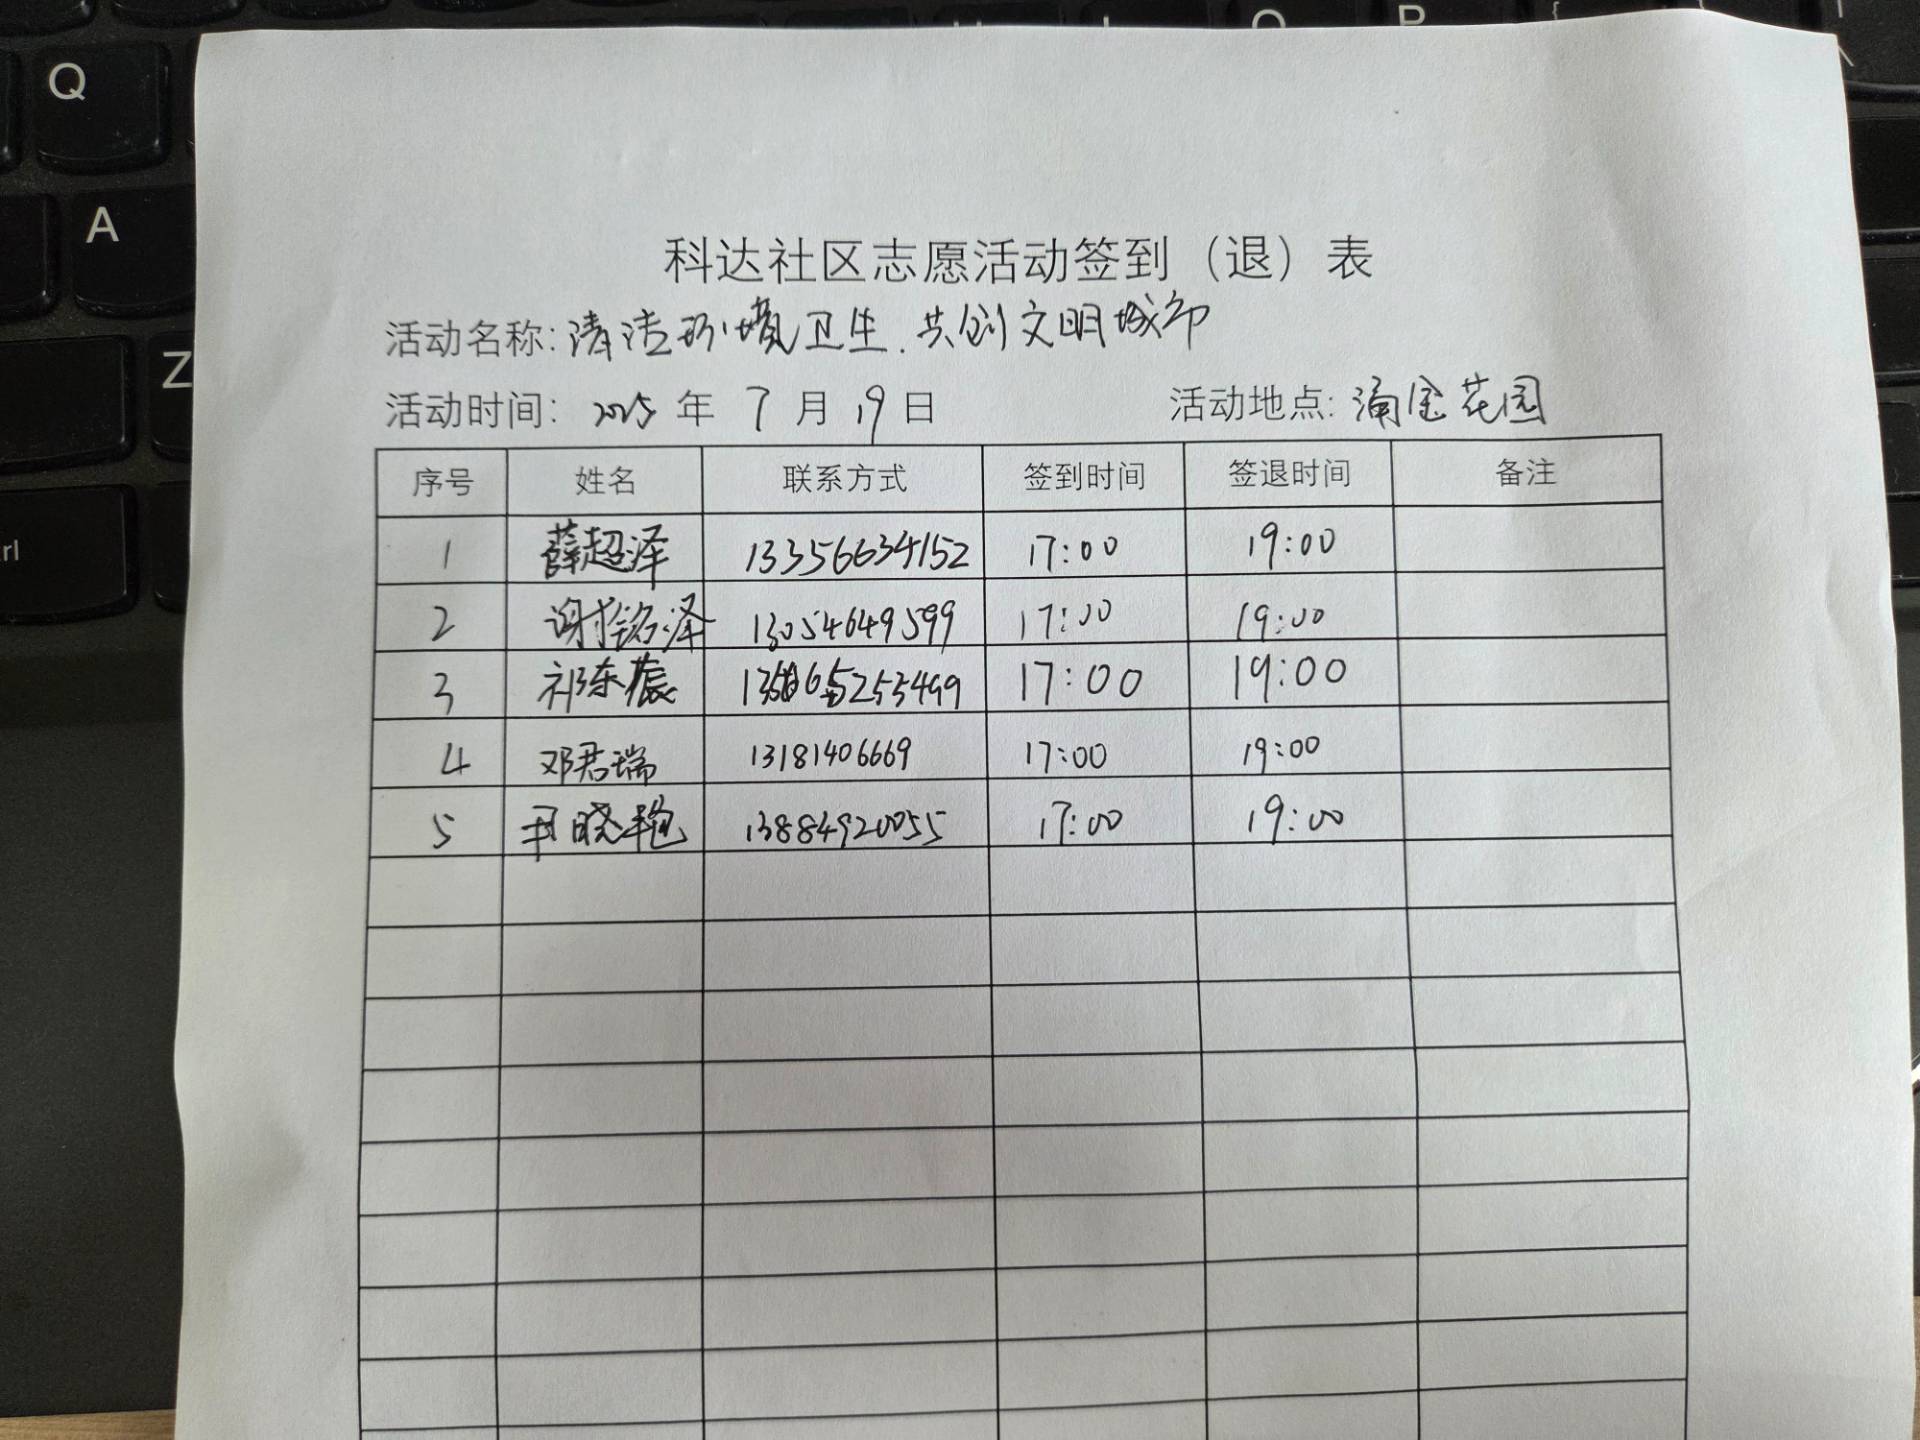 Q
P
A
Z
科达社区志愿活动签到（退）表
活动名称: 清洁环境卫生.共创文明城市
活动时间: 2025 年 7 月 19 日 活动地点: 涌金花园
序号 姓名 联系方式 签到时间 签退时间 备注
1 薛超泽 13356634152 17:00 19:00
2 谢铭泽 13054649599 17:00 19:00
3 祁东振 17:00 19:00
4 邓君瑞 13181406669 17:00 19:00
5 尹晓艳 13884920055 17:00 19:00